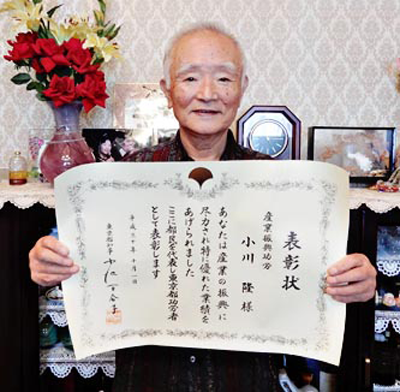 表彰状
産業振興功労
小川 隆 様
あなたは産業の振興に
尽力され特に優れた業績を
あげられました
ここに都民を代表し東京都功労者
として表彰します
平成三十年十月一日
東京都知事 小池百合子